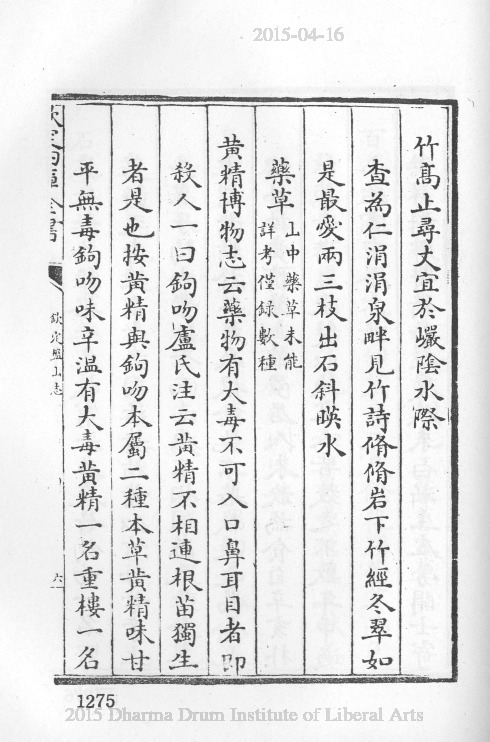 2015-04-16
竹高止尋丈宜於巖陰水際
查為仁涓涓泉畔見竹詩脩脩岩下竹經冬翠如
是最愛兩三枝出石斜暎水
藥草山中藥草未能
詳考僅録數種
黄精博物志云藥物有大毒不可入口鼻耳目者即
殺人一曰鉤吻盧氏注云黄精不相連根苗獨生
者是也按黄精與鉤吻本屬二種本草黄精味甘
平無毒鉤吻味辛溫有大毒黄精一名重樓一名
欽定四庫全書
欽定盤山志
六
1275
2015 Dharma Drum Institute of Liberal Arts